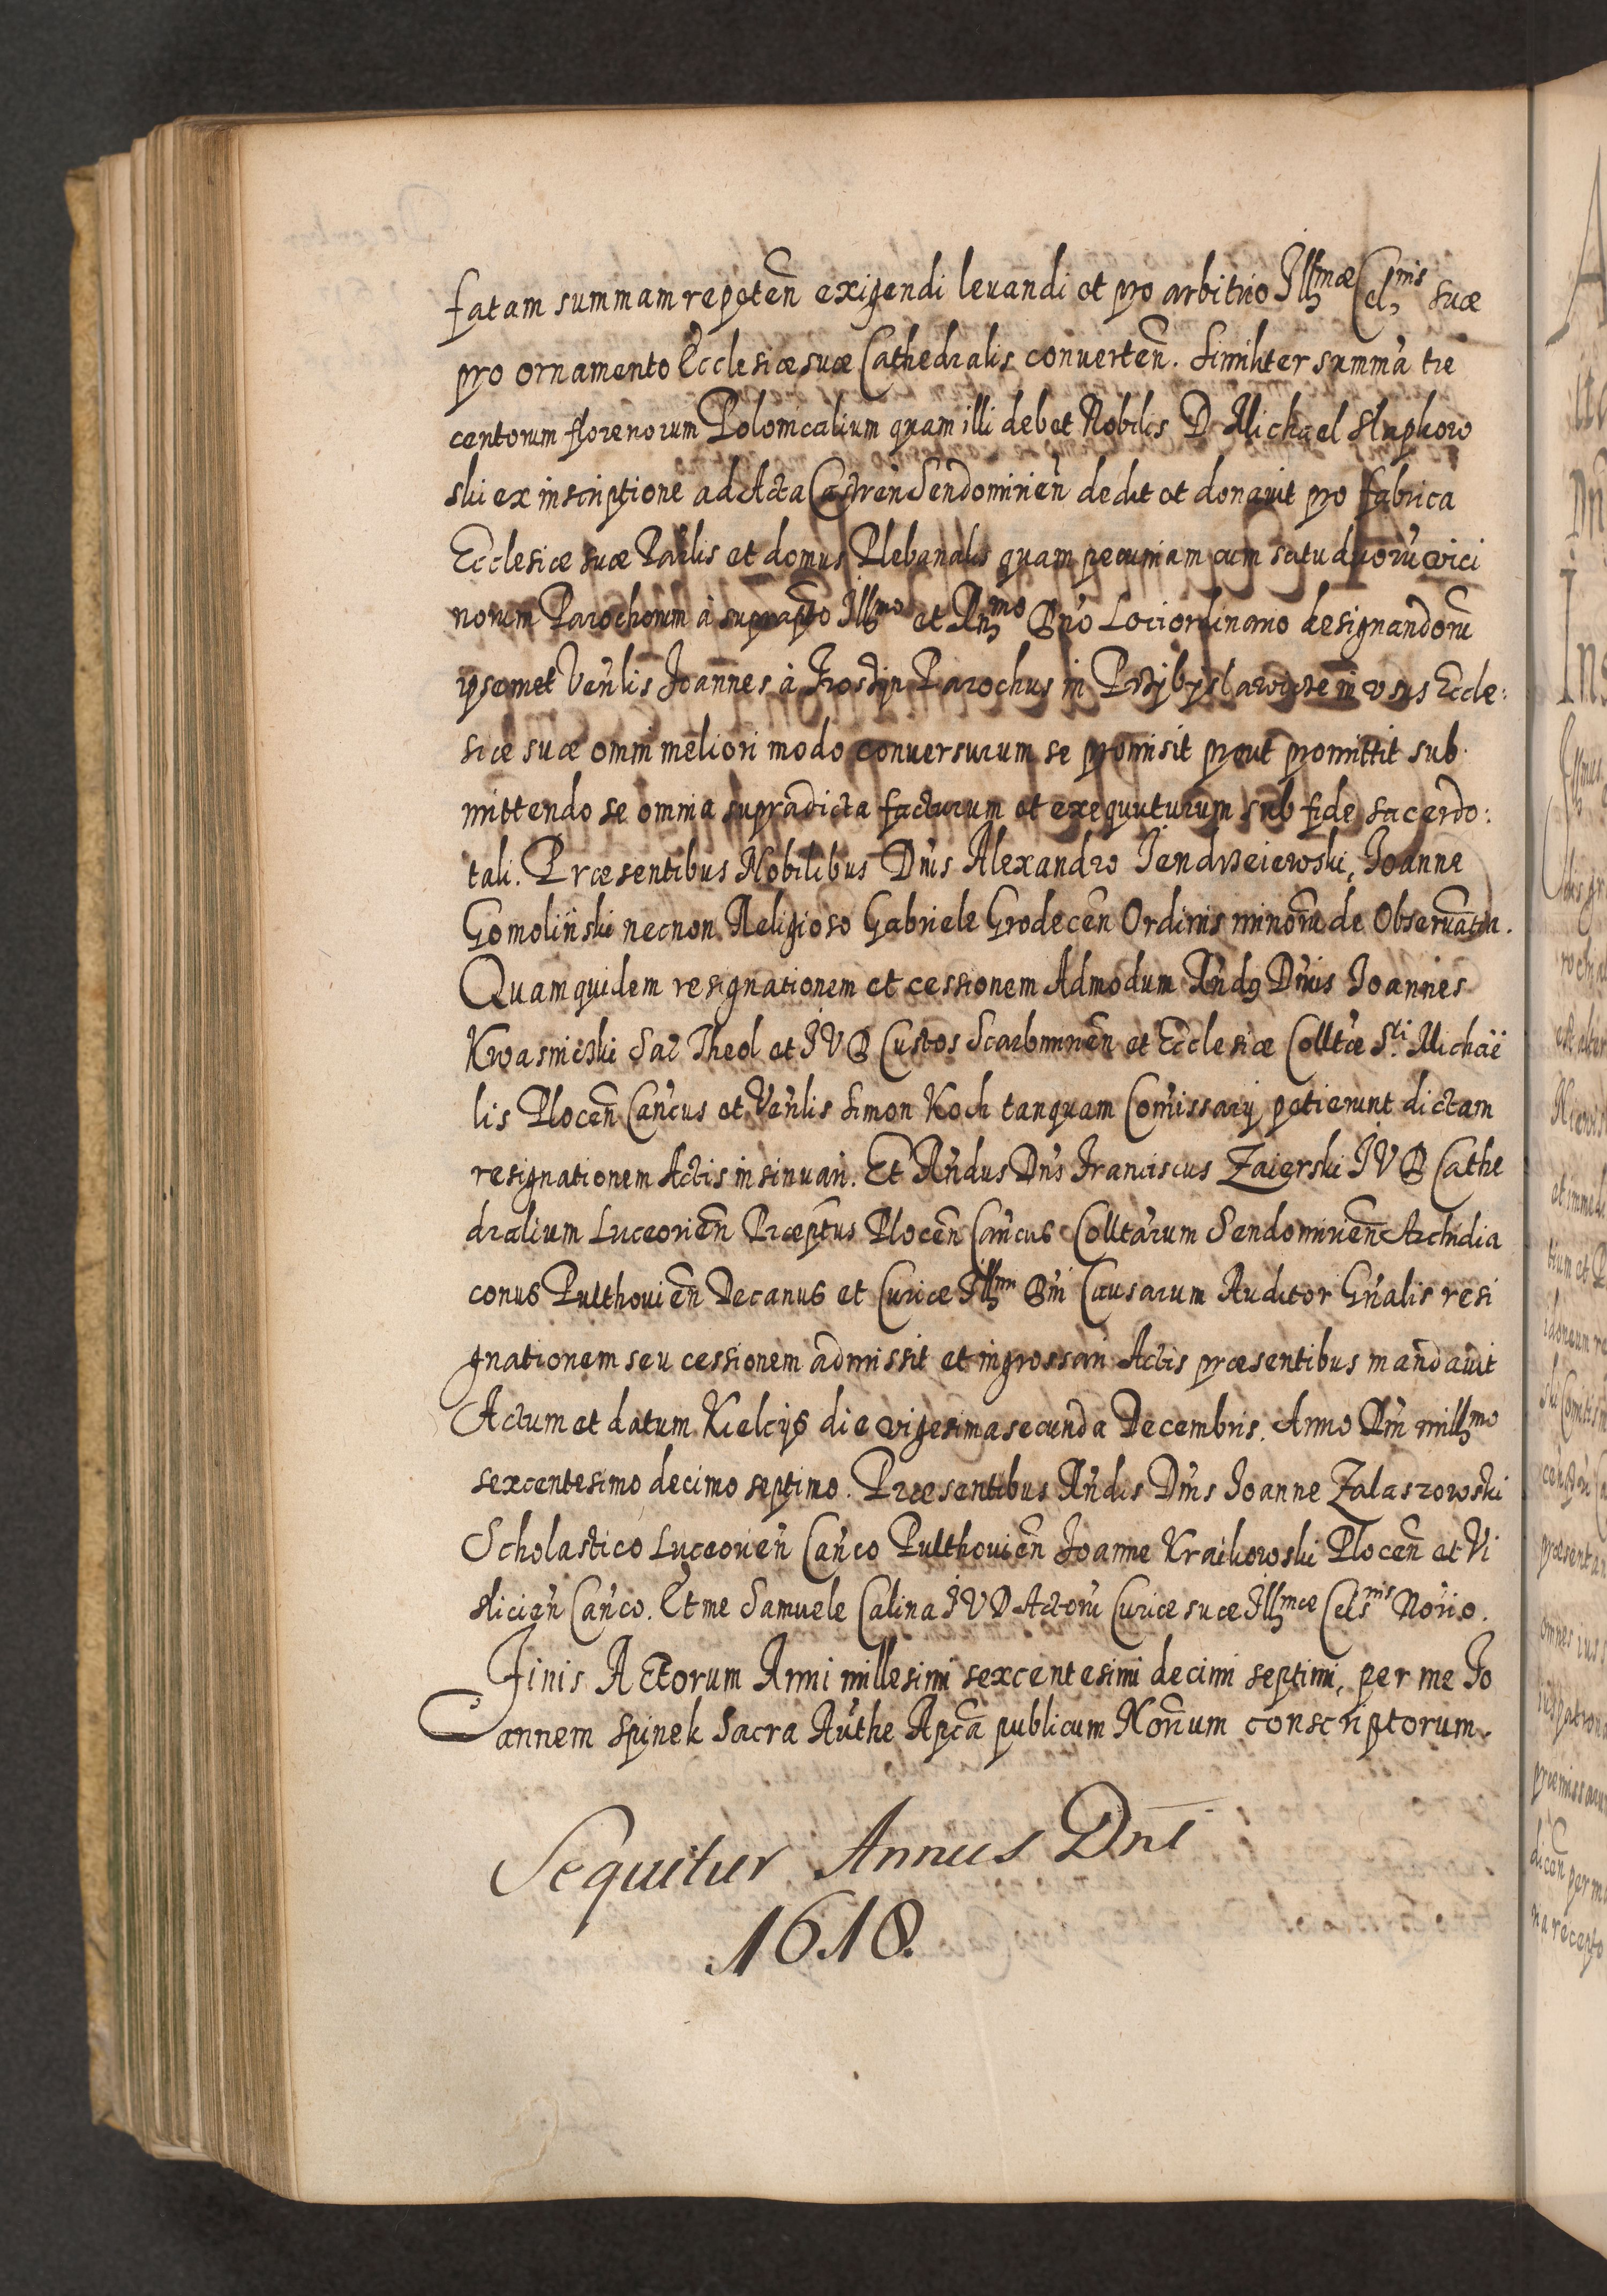 fatam summam repeten̄ exigendi leuandi et pro arbitrio Illmæ Celnis suæ
pro ornamento Ecclesiæ suæ Cathedralis conuerten̄. Similiter summā tre
centorum florenorum Polonicalium quam illi debet Nobilis D Michael Slupkow
ski ex inscriptione ad Acta Castren Sendomirien̄ dedit et donauit pro fabrica
Ecclesiæ suæ Parlis et domus Plebanalis quam pecuniam cum scitu duorū vici
norum Parochorum à suprapto Illmo et Rndmo Dn̄o Loci ordinario designandorū
ipsemet Venlis Joannes à Krostyn Parochus in Przybyslawice in vsus Eccle:
siæ suæ omni meliori modo conuersurum se promisit prout promittit sub
mittendo se omnia supradicta facturum et exequuturum sub fide sacerdo:
tali. Præsentibus Nobilibus Dnis Alexandro Jendrzeiewski, Joanne
Gomoliński necnon Religioso Gabriele Grodecen̄ Ordinis minorū de Obseruātia.
Quam quidem resignationem et cessionem Admodum Rndg Dnus Joannes
Kwasnicki Sac Theol et IVD Custos Scarbimirien̄ et Ecclesiæ Colltæ Sti Michaë
lis Plocen̄ Can̄cus et Ven̄lis Simon Koch tanquam Com̄issarij petierunt dictam
resignationem Actis insinuari. Et Rn̄dus Dn̄s Franciscus Zaierski IVD Cathe
dralium Luceorien̄ Præptus Plocen̄ Can̄cus Colltarum Sendomirien̄ Archidia
conus Pulthouien̄ Decanus et Curiæ Illmi Dn̄i Causarum Auditor Gn̄alis resi
gnationem seu cessionem admissit et ingrossari Actis præsentibus mandauit
Actum et datum Kielcijs die vigesima secunda Decembris. Anno Dn̄i millmo
sexcentesimo decimo septimo. Præsentibus Rn̄dis Dn̄is Joanne Zalaszowski
Scholastico Luceorien̄ Can̄co Pulthouien̄ Joanne Kraikowski Plocen̄ et Vi
slicien̄ Can̄co. Et me Samuele Calina IVD Actorū Curiæ suæ Illmæ Celsnis Nōrio.
Finis Actorum Anni millesimi sexcentesimi decimi septimi, per me Jo
annem Spinek Sacra Authe Apca publicum Norium conscriptorum.
Sequitur Annus Dnī
1618.